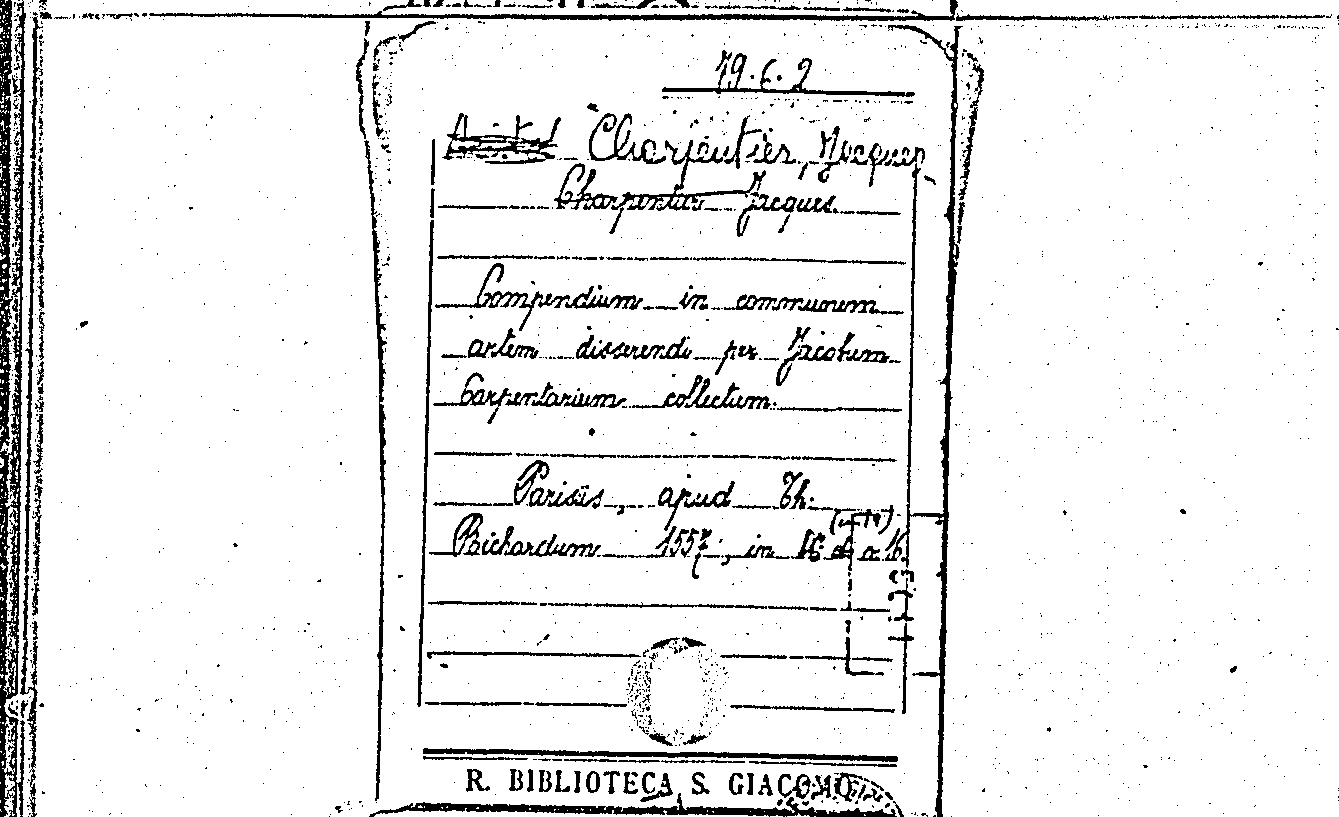 79.6.2
Charpentier, Jacques
Charpentier Jacques
Compendium in communem
artem disserendi per Jacobum
Carpentarium collectum.
Parisiis, apud Th.
Richardum 1557; in
R. BIBLIOTECA S. GIACOMO